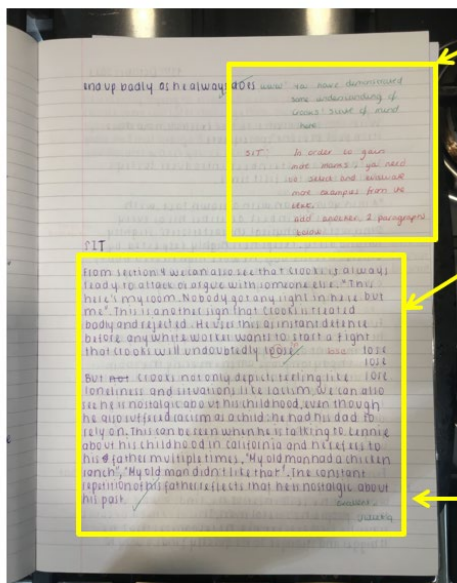 end up badly as he always does
WWW: You have demonstrated
some understanding of
Crooks' state of mind
here.
SIT: In order to gain
more marks, you need
to select and evaluate
more examples from the
text.
Add another 2 paragraphs
below.
SIT
From section 4 we can also see that Crooks is always
ready to attack or argue with someone else. "This
here's my room. Nobody got any right in here but
me". This is another sign that Crooks is treated
badly and rejected. He uses this as instant defence
before any white worker wants to start a fight
that Crooks will undoubtedly loose. lose
lose
But not Crooks not only depicts feeling like lose
loneliness and situations like racism, we can also
see he is nostalgic about his childhood, even though
he also suffered racism as a child, he had his dad to
rely on. This can be seen when he is talking to Lennie
about his childhood in California and he refers to
his father multiple times, "My old man had a chicken
ranch", "My old man didn't like that". The constant
repetition of his father reflects that he is nostalgic about
his past.
Excellent,